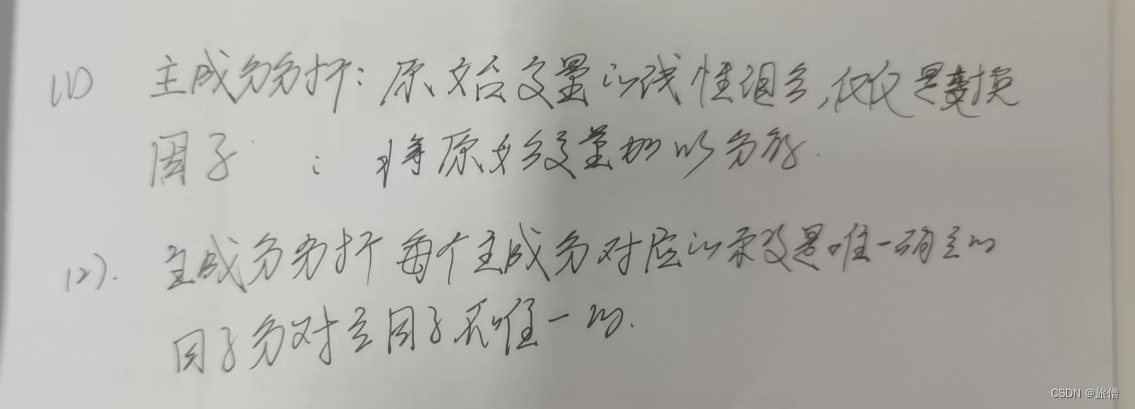 (1) 主成分分析:原始变量的线性组合,仅仅是变换
因子 : 将原始变量加以分解.
(2). 主成分分析 每个主成分对应的系数是唯一确定的
因子分对应因子不唯一的.
CSDN @旅僧